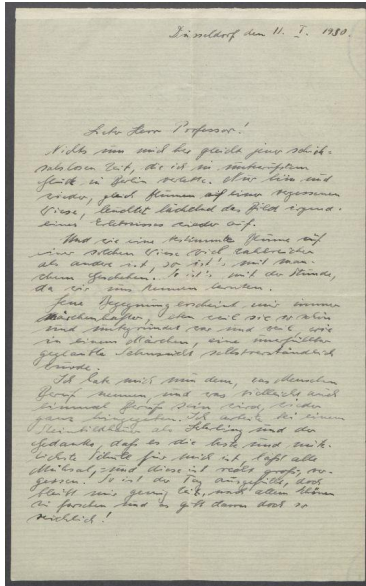 Düsseldorf den 11. I. 1930.
Lieber Herr Professor!
Nichts um mich her gleicht jener schick-
salslosen Zeit, die ich in
in Berlin verlebte. Nur hin und
wieder, gleich Blumen auf einer vergessenen
Wiese, leuchtet lächelnd das Bild irgend-
eines Erlebnisses wieder auf.
Und wie eine bestimmte Blume auf
einer solchen Wiese viel zahlreicher
als andere ist, so ist's mit man-
chem Geschehen. So ist's mit der Stunde,
da wir uns kennen lernten.
Jene Begegnung erscheint mir immer
märchenhafter, eben weil sie so schön
und unbegründet war und weil, wie
in einem Märchen, eine unerfüllbar
geglaubte Sehnsucht selbstverständlich
wurde.
Ich habe mich nun dem, was Menschen
Beruf nennen, und was vielleicht auch
einmal Beruf sein wird, wieder
ganz hingegeben. Ich arbeite bei einem
als Lehrling und der
Gedanke, daß es die beste und
Schule für mich ist, läßt alle
Mühsal, und diese ist recht groß, ver-
gessen. So ist der Tag ausgefüllt, doch
bleibt mir genug Zeit, nach allem Schönen
zu forschen und es gibt davon doch so
reichlich!